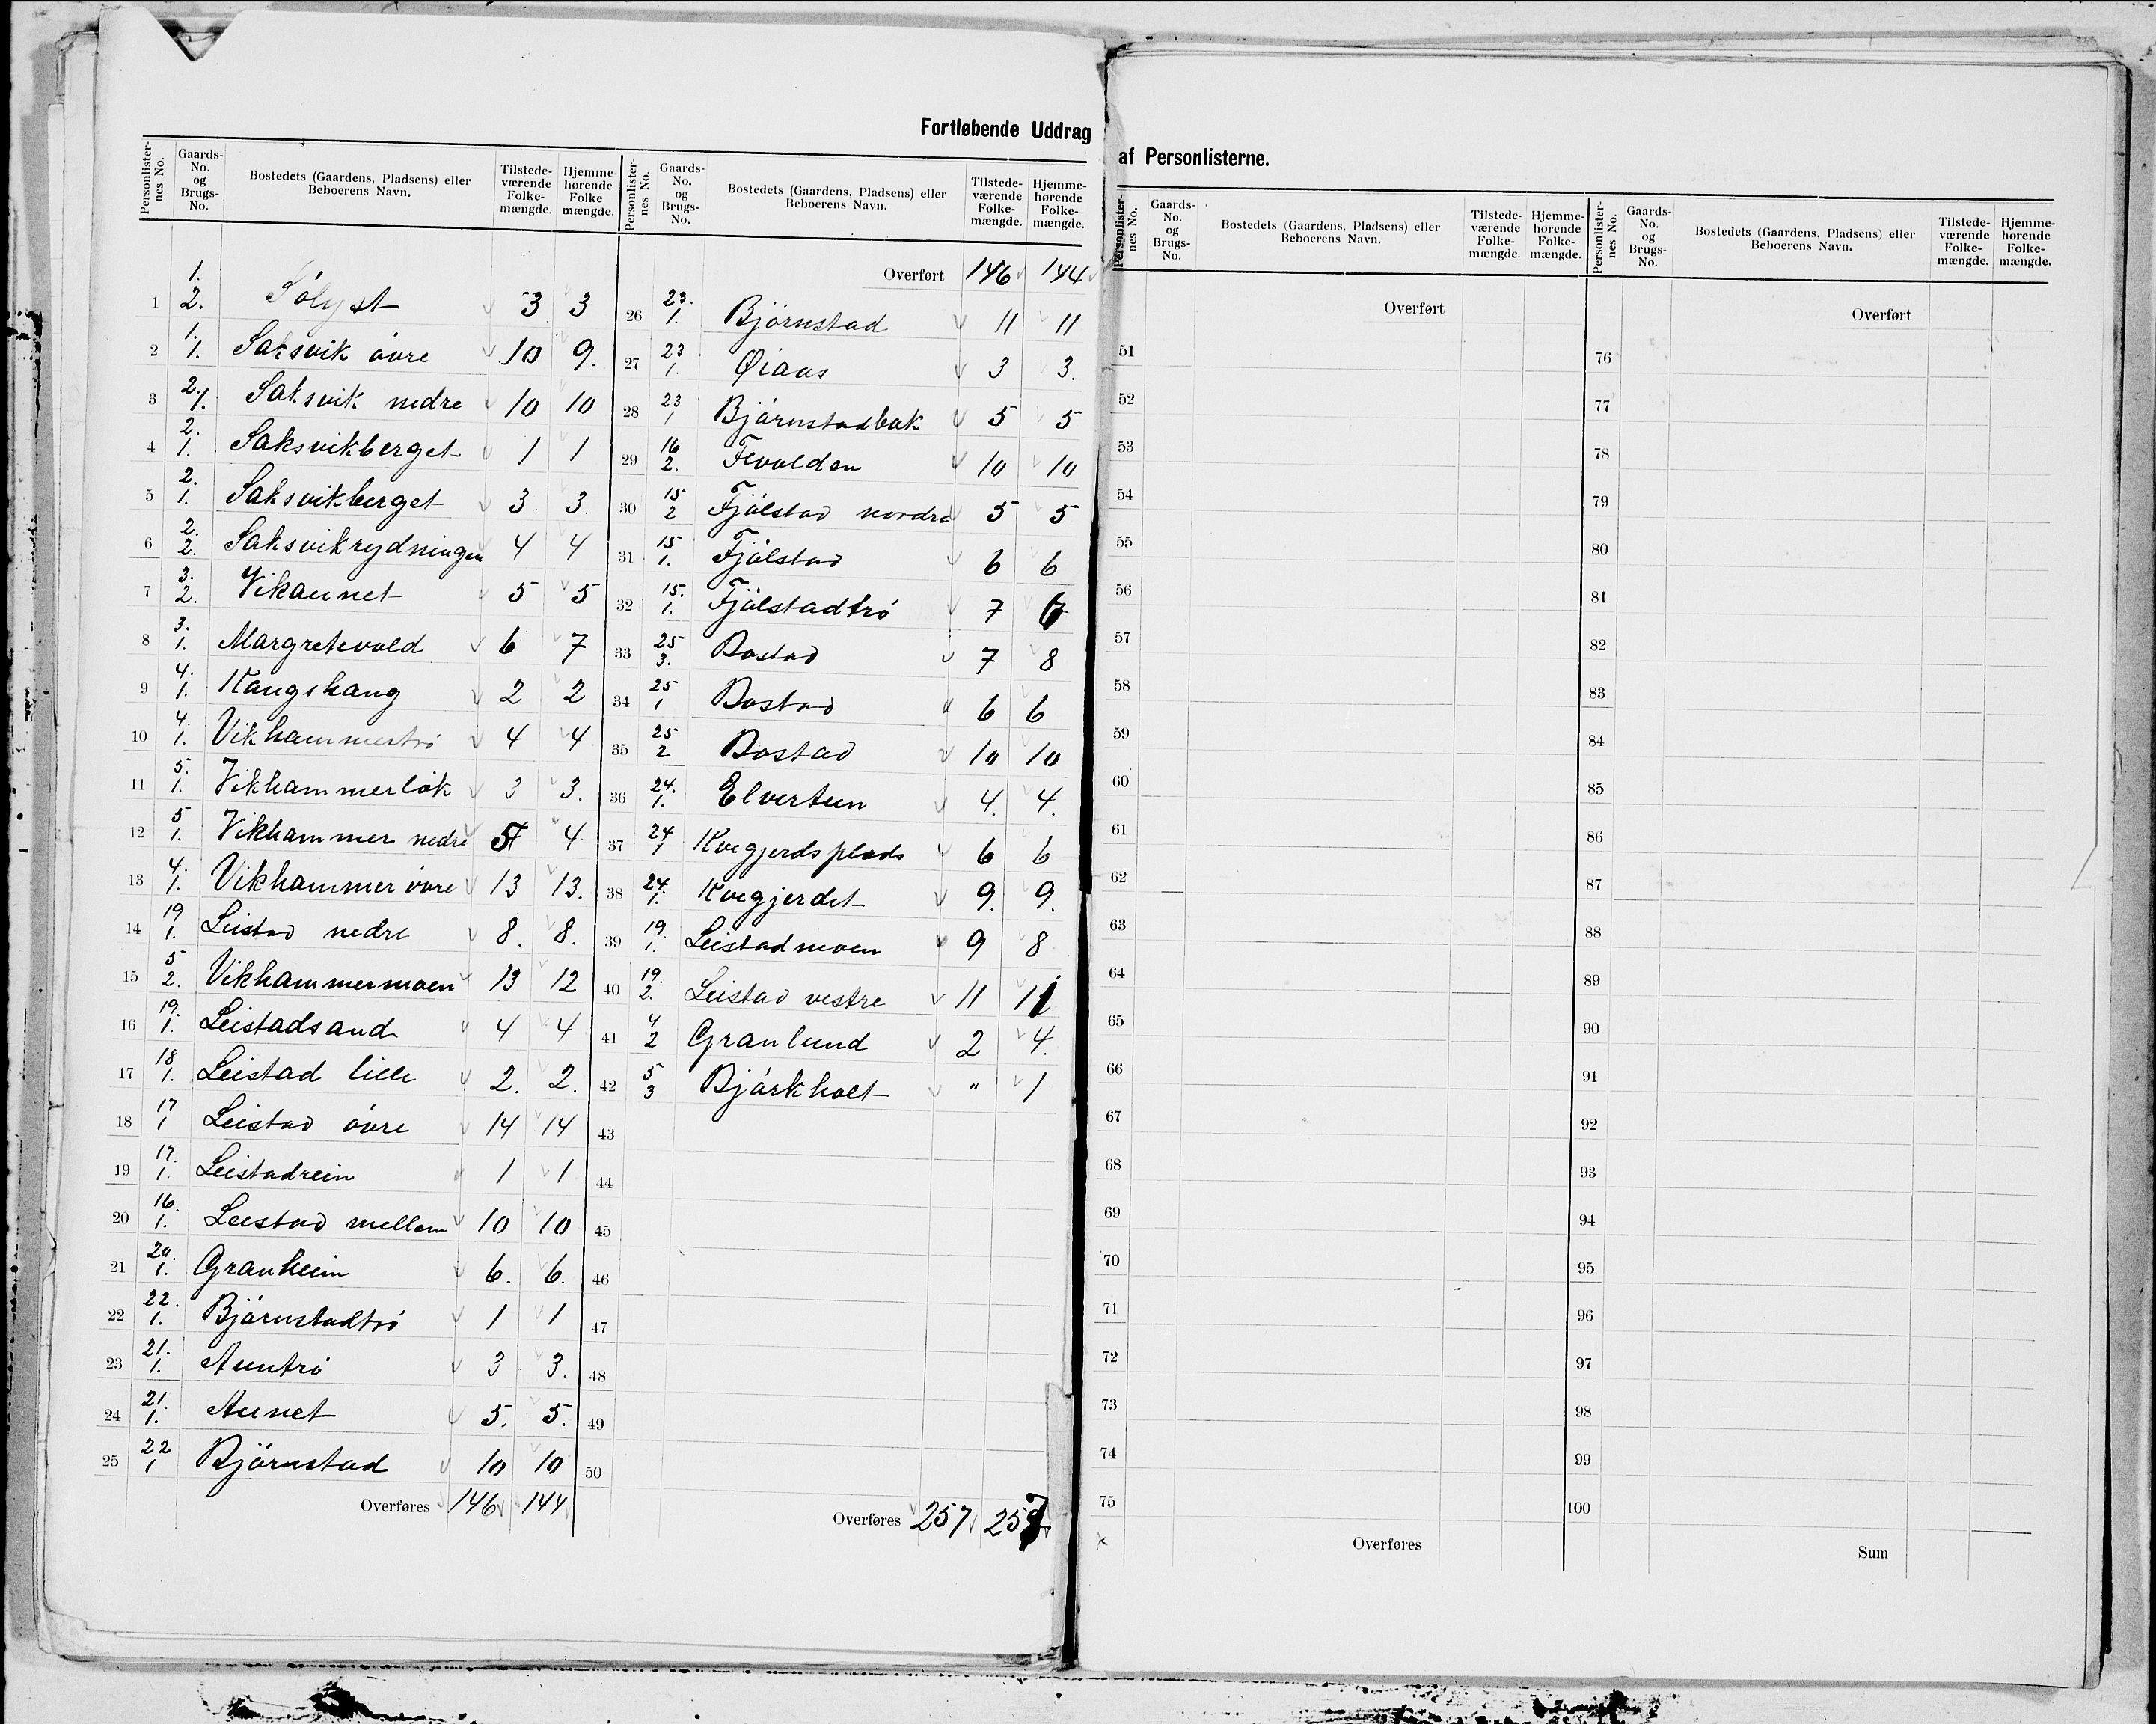 Fortløbende Uddrag af Personlisterne.
Personlister-nes No. | Gaards-No. og Brugs-No. | Bostedets (Gaardens, Pladsens) eller Beboerens Navn. | Tilstede-værende Folke-mængde. | Hjemme-hørende Folke mængde.
1 | 1. 2. | Sólyst | 3 | 3
2 | 1. 1. | Saksvik óvre | 10 | 9.
3 | 2. 1. | Saksvik nedre | 10 | 10
4 | 2. 1. | Saksvikberget | 1 | 1
5 | 2. 1. | Saksvikberget | 3 | 3.
6 | 2. 2. | Saksvikrydningen | 4 | 4
7 | 3. 2. | Vikaunet | 5 | 5
8 | 3. 1. | Margretevold | 6 | 7
9 | 4. 1. | Kongshaug | 2 | 2
10 | 4. 1. | Vikhammertró | 4 | 4
11 | 5. 1. | Vikhammerlók | 3 | 3.
12 | 5 1. | Vikhammer nedre | 5 | 4
13 | 4. 1. | Vikhammer óvre | 13 | 13.
14 | 19 1. | Leistad nedre | 8. | 8.
15 | 5 2. | Vikhammermoen | 13 | 12
16 | 19. 1. | Leistadsand | 4 | 4
17 | 18 1. | Leistad lille | 2. | 2.
18 | 17 1 | Leistad óvre | 14 | 14
19 | 17. 1. | Leistadrein | 1 | 1
20 | 16. 1. | Leistad mellem | 10 | 10
21 | 20. 1. | Granheim | 6. | 6.
22 | 22. 1. | Bjórnstadtró | 1 | 1
23 | 21. 1. | Auntró | 3 | 3.
24 | 21. 1. | Aunet | 5. | 5.
25 | 22 1 | Bjórnstad | 10 | 10
Overføres 146 144
Personlister-nes No. | Gaards-No. og Brugs-No. | Bostedets (Gaardens, Pladsens) eller Beboerens Navn. | Tilstede-værende Folke-mængde. | Hjemme-hørende Folke-mængde.
Overført 146 144
26 | 23. 1. | Bjórnstad | 11 | 11
27 | 23 1. | Øiaas | 3 | 3.
28 | 23 1 | Bjórnstadbak | 5 | 5
29 | 16 2. | Flvolden | 10 | 10
30 | 15 2 | Fjólstad nordre | 5 | 5
31 | 15 1. | Fjólstad | 6 | 6
32 | 15. 1. | Fjólstadtró | 7 | 6
33 | 25 3. | Bostad | 7 | 8
34 | 25 1 | Bostad | 6 | 6
35 | 25 2 | Bostad | 10 | 10
36 | 24. 1. | Elvertun | 4. | 4.
37 | 24 1 | Kvegjerdsplads | 6 | 6
38 | 24. 1. | Kvegjerdet | 9. | 9.
39 | 19. 1. | Leistadmoen | 9 | 8
40 | 19. 2. | Leistad vestre | 11 | 11
41 | 4 2 | Granlund | 2 | 4.
42 | 5 3 | Bjórkholt | " | 1
43
44
45
46
47
48
49
50
Overføres 257 257
Personlister-nes No. | Gaards-No. og Brugs-No. | Bostedets (Gaardens, Pladsens) eller Beboerens Navn. | Tilstede-værende Folke-mængde. | Hjemme-hørende Folke-mængde.
Overført
51
52
53
54
55
56
57
58
59
60
61
62
63
64
65
66
67
68
69
70
71
72
73
74
75
Overføres
Personlister-nes No. | Gaards-No. og Brugs-No. | Bostedets (Gaardens, Pladsens) eller Beboerens Navn. | Tilstede-værende Folke-mængde. | Hjemme-hørende Folke-mængde.
Overført
76
77
78
79
80
81
82
83
84
85
86
87
88
89
90
91
92
93
94
95
96
97
98
99
100
Sum